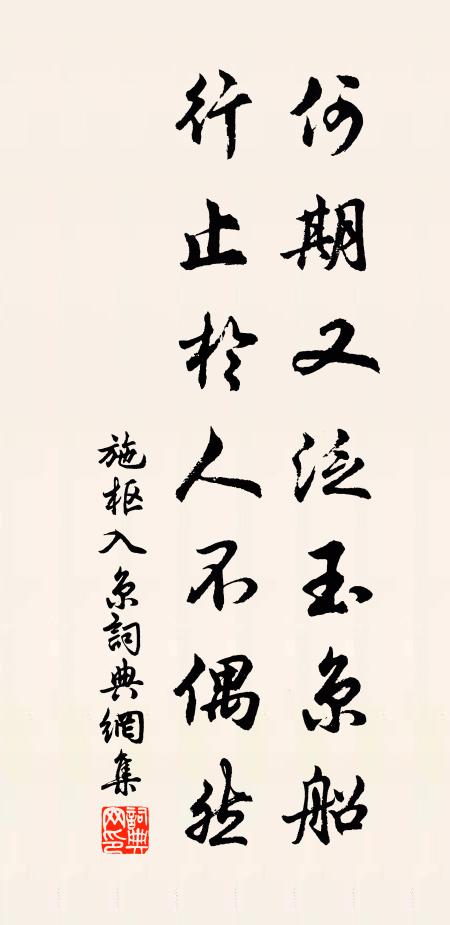 何期又泛玉京船
行止於人不偶然
施枢入京詞典網集
詞典網印